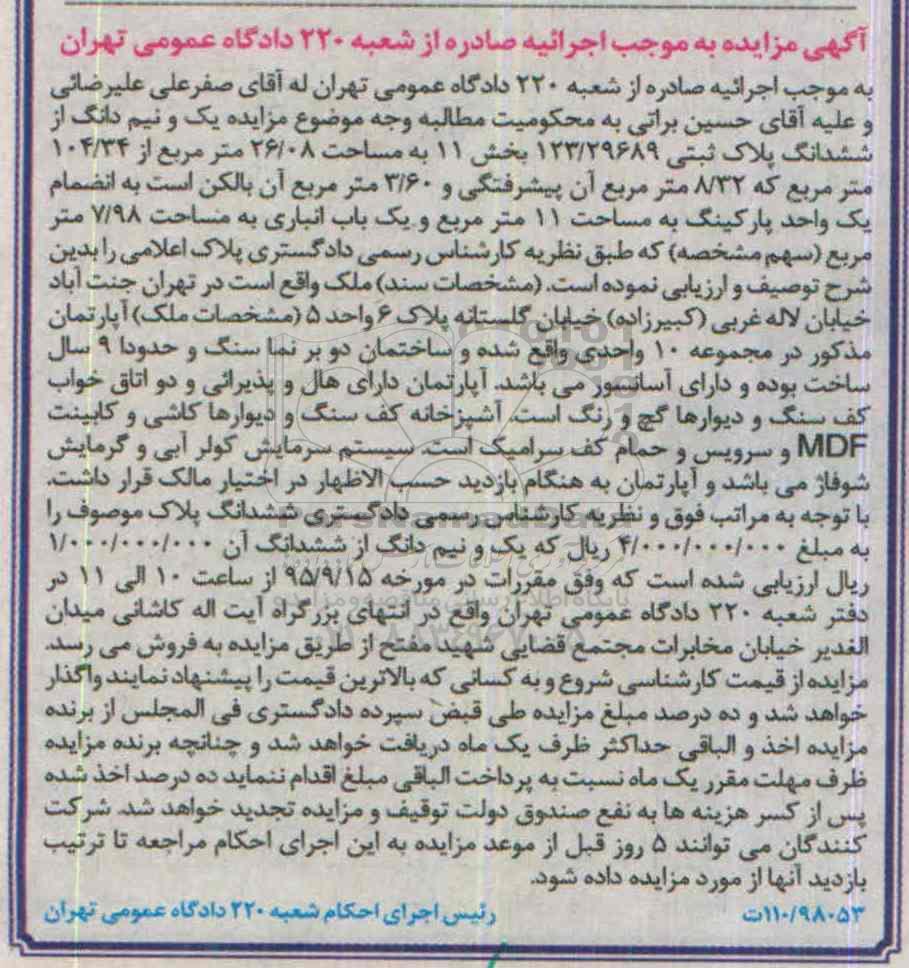 آگهی مزایده به موجب اجرائیه صادره از شعبه ۲۲۰ دادگاه عمومی تهران
به موجب اجرائیه صادره از شعبه ۲۲۰ دادگاه عمومی تهران له آقای صفرعلی علیرضائی
و علیه آقای حسین براتی به محکومیت مطالبه وجه موضوع مزایده یک و نیم دانگ از
ششدانگ پلاک ثبتی ۱۲۳/۲۹۶۸۹ بخش ۱۱ به مساحت ۲۶/۰۸ متر مربع از ۱۰۴/۳۴
متر مربع که ۸/۳۲ متر مربع آن پیشرفتگی و ۳/۶۰ متر مربع آن بالکن است به انضمام
یک واحد پارکینگ به مساحت ۱۱ متر مربع و یک باب انباری به مساحت ۷/۹۸ متر
مربع (سهم مشخصه) که طبق نظریه کارشناس رسمی دادگستری پلاک اعلامی را بدین
شرح توصیف و ارزیابی نموده است. (مشخصات سند) ملک واقع است در تهران جنت آباد
خیابان لاله غربی (کبیرزاده) خیابان گلستانه پلاک ۶ واحد ۵ (مشخصات ملک) آپارتمان
مذکور در مجموعه ۱۰ واحدی واقع شده و ساختمان دو بر نما سنگ و حدودا ۹ سال
ساخت بوده و دارای آسانسور می باشد. آپارتمان دارای هال و پذیرائی و دو اتاق خواب
کف سنگ و دیوارها گچ و رنگ است. آشپزخانه کف سنگ و دیوارها کاشی و کابینت
MDF و سرویس و حمام کف سرامیک است. سیستم سرمایش کولر آبی و گرمایش
شوفاژ می باشد و آپارتمان به هنگام بازدید حسب الاظهار در اختیار مالک قرار داشت.
با توجه به مراتب فوق و نظریه کارشناس رسمی دادگستری ششدانگ پلاک موصوف را
به مبلغ ۴/۰۰۰/۰۰۰/۰۰۰ ریال که یک و نیم دانگ از ششدانگ آن ۱/۰۰۰/۰۰۰/۰۰۰
ریال ارزیابی شده است که وفق مقررات در مورخه ۹۵/۹/۱۵ از ساعت ۱۰ الی ۱۱ در
دفتر شعبه ۲۲۰ دادگاه عمومی تهران واقع در انتهای بزرگراه آیت اله کاشانی میدان
الغدیر خیابان مخابرات مجتمع قضایی شهید مفتح از طریق مزایده به فروش می رسد.
مزایده از قیمت کارشناسی شروع و به کسانی که بالاترین قیمت را پیشنهاد نمایند واگذار
خواهد شد و ده درصد مبلغ مزایده طی قبض سپرده دادگستری فی المجلس از برنده
مزایده اخذ و الباقی حداکثر ظرف یک ماه دریافت خواهد شد و چنانچه برنده مزایده
ظرف مهلت مقرر یک ماه نسبت به پرداخت الباقی مبلغ اقدام ننماید ده درصد اخذ شده
پس از کسر هزینه ها به نفع صندوق دولت توقیف و مزایده تجدید خواهد شد. شرکت
کنندگان می توانند ۵ روز قبل از موعد مزایده به این اجرای احکام مراجعه تا ترتیب
بازدید آنها از مورد مزایده داده شود.
۱۱۰/۹۸۰۵۳ت رئیس اجرای احکام شعبه ۲۲۰ دادگاه عمومی تهران